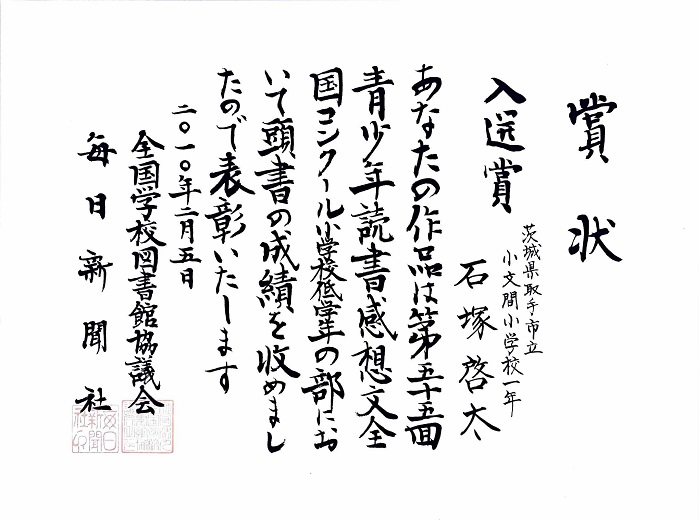 賞状
入選賞
茨城県取手市立
小文間小学校一年
石塚啓太
あなたの作品は第五十五回
青少年読書感想文全
国コンクール小学校低学年の部にお
いて頭書の成績を收めまし
たので表彰いたします
二〇一〇年二月五日
全国学校図書館協議会
毎日新聞社
毎日
新聞
社印